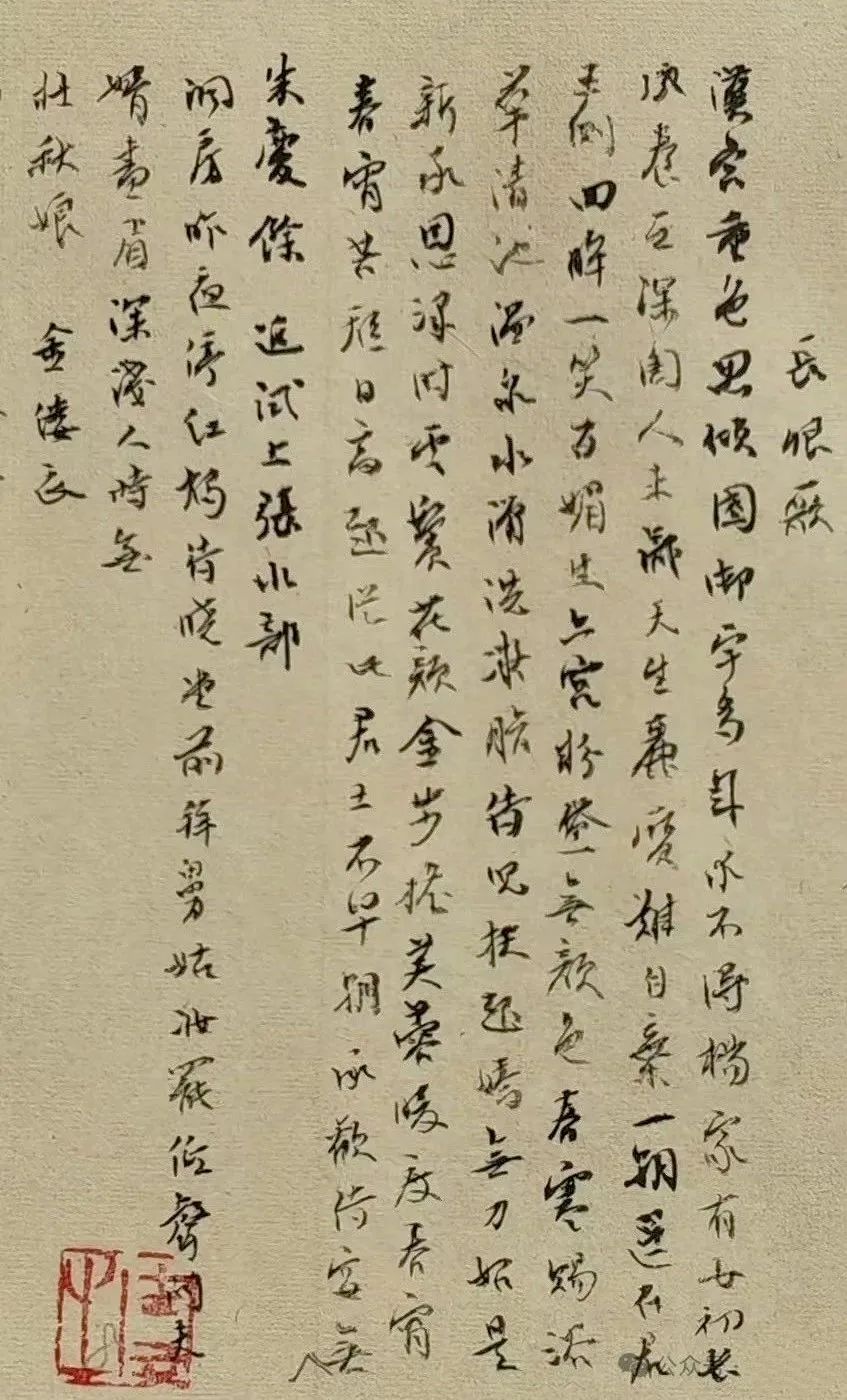 長恨歌
漢重色思傾國御宇多年求不得楊家有女初長
成養在深閨人未識天生麗質難自棄一朝選在君
王側回眸一笑百媚生六宮粉黛無顏色春寒賜浴
華清池溫泉水滑洗凝脂侍兒扶起嬌無力始是
新承恩澤時雲鬢花顏金步搖芙蓉暖度春宵
春宵苦短日高起從此君王不早朝承歡侍宴無
朱慶餘 近試上張水部
洞房昨夜停紅燭待曉堂前拜舅姑妝罷低聲問夫
婿畫眉深淺入時無
杜秋娘 金縷衣
公众